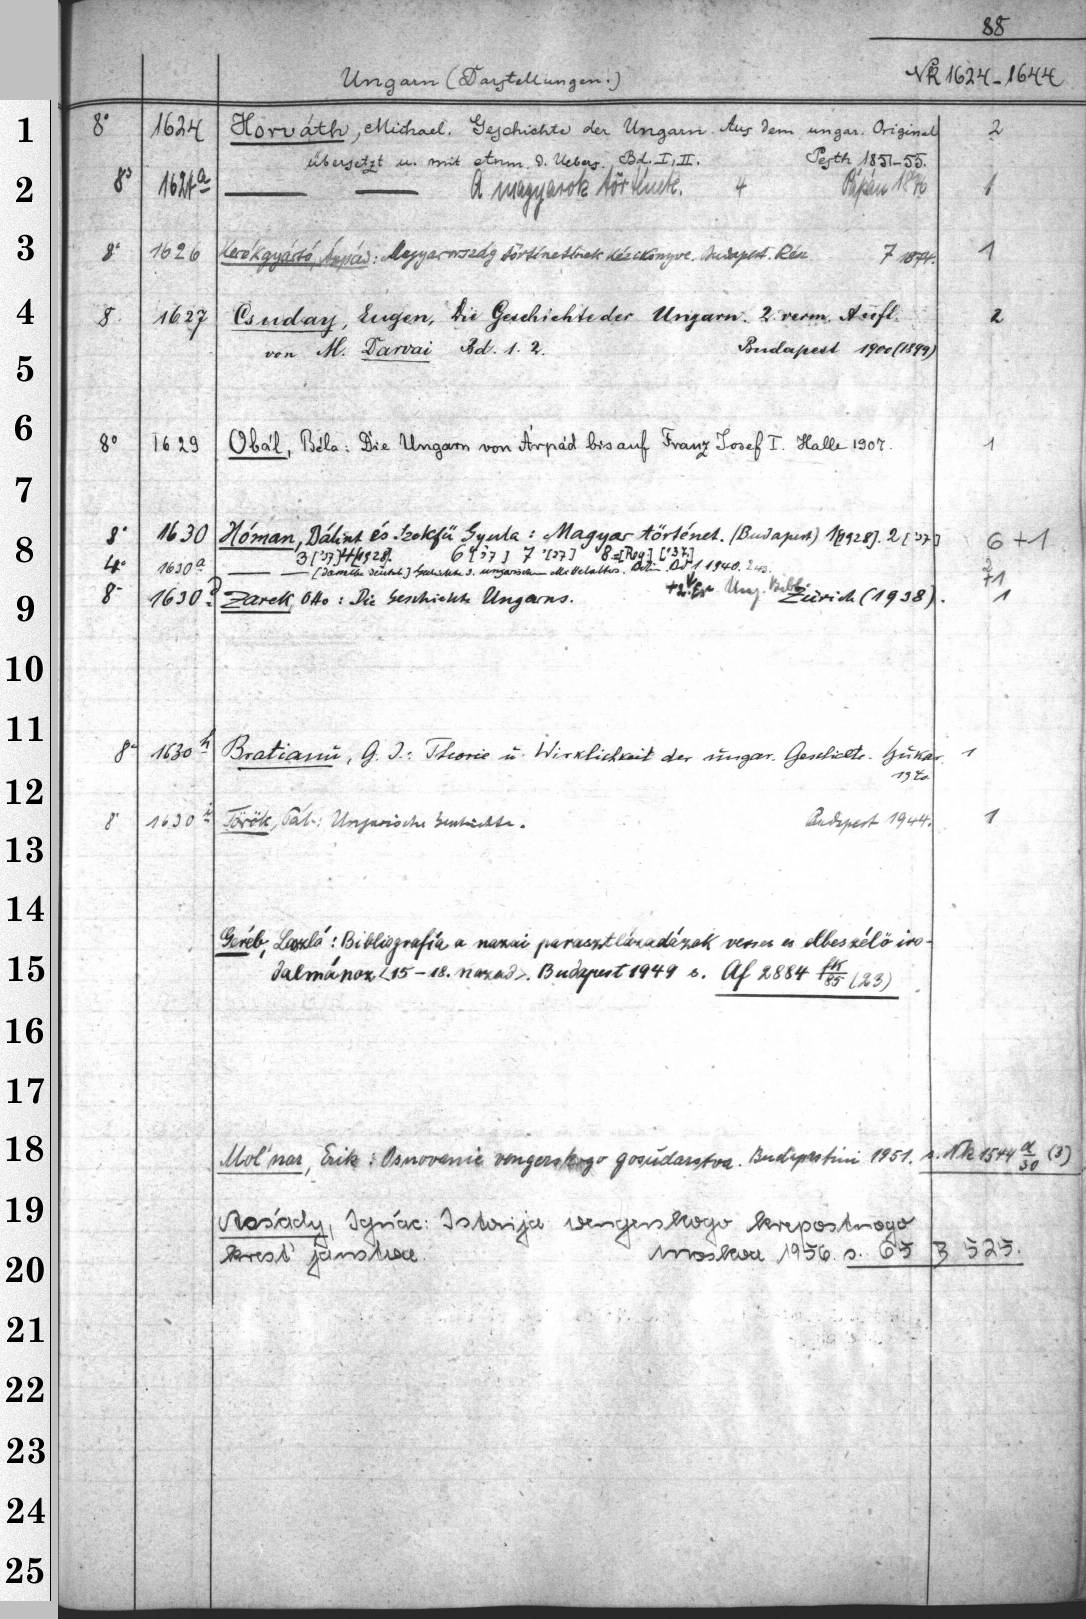 88
Ungarn (Darstellungen.) NR 1624-1644
1 8° 1624 Horváth, Michael. Geschichte der Ungarn. Aus dem ungar. Original 2
übersetzt u. mit Anm. d. Uebers. Bd. I, II. Pesth 1851-55.
2 8° 1624a — — A magyarok tört 4 Pápán 1
3 8° 1626 Kerékgyártó, Árpád: Magyarország történetének kézikönyve. Budapest. 7 1874. 1
4 8° 1627 Csuday, Eugen, Die Geschichte der Ungarn. 2. verm. Aufl. 2
von M. Darvai Bd. 1. 2. Budapest 1900 (1899)
5
6 8° 1629 Obál, Béla: Die Ungarn von Árpád bis auf Franz Josef I. Halle 1907. 1
7
8° 1630 Hóman, Bálint és Szekfü Gyula: Magyar történet. (Budapest) 1[1928]. 2['37] 6+1
8 3['37] 4[1928]. 6['37] 7['37] 8=[Reg] ['37]
4° 1630a — — Geschichte d. ungarischen Mittelalters. Bd 1 1940. 2
+2. Ung. Bibl. 1
9 8° 1630 Zarek, Otto: Die Geschichte Ungarns. Zürich (1938). 1
10
11 8° 1630h Bratianu, G. I.: Theorie u. Wirklichkeit der ungar. Geschichte. Bukar. 1
1940.
12
8° 1630i Török, Pál: Ungarische Geschichte. Budapest 1944. 1
13
14
Geréb, László: Bibliografia a hazai parasztlázadások verses és elbeszélö iro-
15 dalmához <15-18. század>. Budapest 1949 s. Af 2884 fk/85 (23)
16
17
18 Mol'nar, Erik: Osnovenie vengerskogo gosudarstva. Budapestini 1951. s. Nk 1544 a/30 (3)
19 Acsády, Ignác: Istorija vengerskogo krepostnogo
20 krest'janstva. Moskva 1956. s. 65 B 525.
21
22
23
24
25